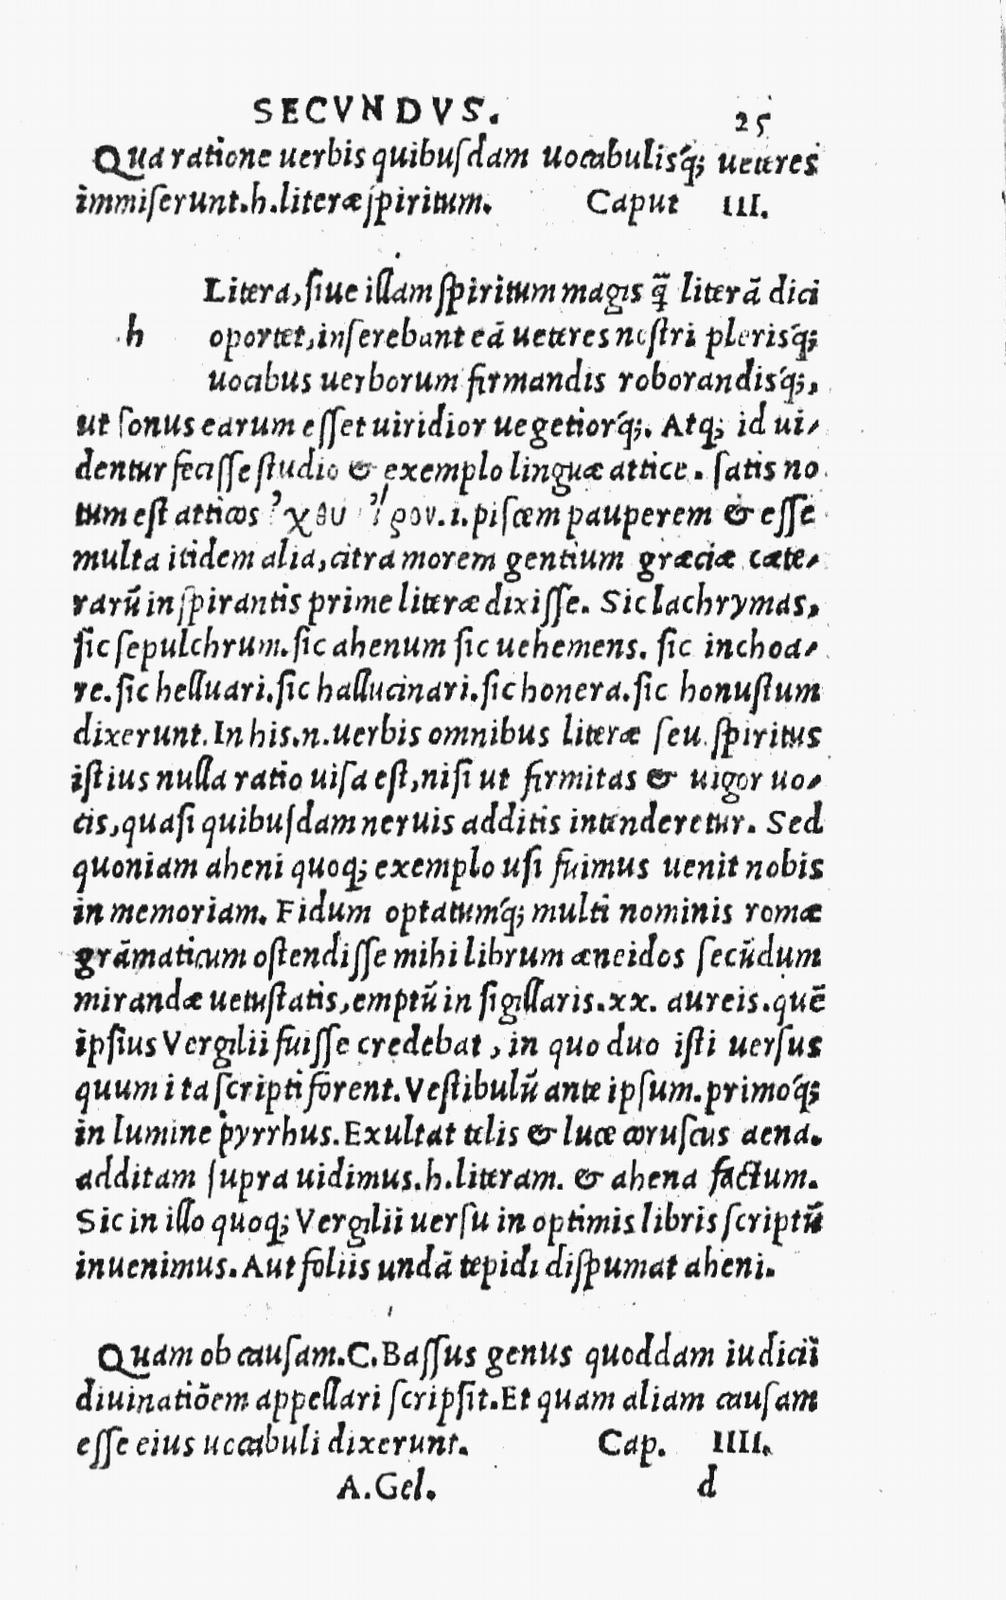 SECVNDVS. 25
Qua ratione uerbis quibusdam uocabulisq́; ueteres
immiserunt.h.literæ spiritum. Caput III.
Litera, siue illam spiritum magis q̃ literā dici
h oportet, inserebant eā ueteres nostri plerisq́;
uocibus uerborum firmandis roborandisq́;,
ut sonus earum esset uiridior uegetiorq́;. Atq; id ui/
dentur fecisse studio & exemplo linguæ attice. satis no
tum est atticos .i. piscem pauperem & esse
multa itidem alia, citra morem gentium græciæ cæte/
rarū inspirantis prime literæ dixisse. Sic lachrymas,
sic sepulchrum. sic ahenum sic uehemens. sic inchoa/
re. sic helluari. sic hallucinari. sic honera. sic honustum
dixerunt. In his.n.uerbis omnibus literæ seu spiritus
istius nulla ratio uisa est, nisi ut firmitas & uigor uo/
cis, quasi quibusdam neruis additis intenderetur. Sed
quoniam aheni quoq; exemplo usi fuimus uenit nobis
in memoriam. Fidum optatumq́; multi nominis romæ
grāmaticum ostendisse mihi librum æneidos secūdum
mirandæ uetustatis, emptū in sigillaris.xx. aureis. quē
ipsius Vergilii fuisse credebat, in quo duo isti uersus
quum ita scripti forent. Vestibulū ante ipsum. primoq́;
in lumine pyrrhus. Exultat telis & luce coruscus aena.
additam supra uidimus.h.literam. & ahena factum.
Sic in illo quoq; Vergilii uersu in optimis libris scriptū
inuenimus. Aut foliis undā tepidi dispumat aheni.
Quam ob causam.C.Bassus genus quoddam iudicii
diuinatiōem appellari scripsit. Et quam aliam causam
esse eius uocabuli dixerunt. Cap. IIII.
A.Gel. d